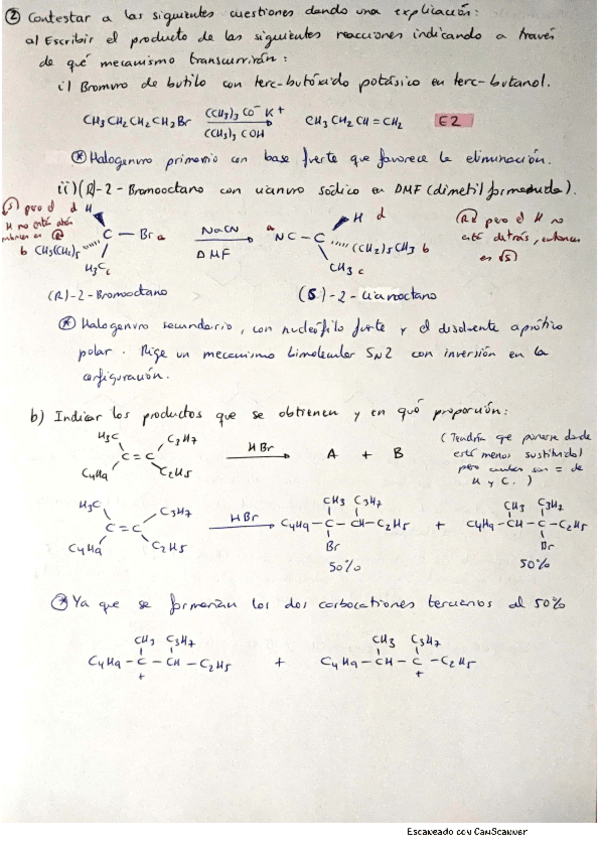 ② Contestar a las siguientes cuestiones dando una explicación:
a) Escribir el producto de las siguientes reacciones indicando a través
de qué mecanismo transcurrirán:
i) Bromuro de butilo con terc-butóxido potásico en terc-butanol.
CH3CH2CH2CH2Br (CH3)3CO⁻K⁺ CH3CH2CH=CH2 E2
(CH3)3COH
* Halogenuro primario con base fuerte que favorece la eliminación.
ii) (R)-2-Bromooctano con cianuro sódico en DMF (dimetilformamida).
(S) pero el H no está atrás entonces es (R)
d H C Br a b CH3(CH2)5 H3C c
NaCN
DMF
a NC-C H d (CH2)5CH3 b CH3 c
(R) pero el H no
está detrás, entonces
es (S)
(R)-2-Bromooctano (S)-2-cianooctano
* Halogenuro secundario, con nucleófilo fuerte y el disolvente aprótico
polar. Rige un mecanismo bimolecular SN2 con inversión en la
configuración.
b) Indicar los productos que se obtienen y en qué proporción:
H3C C3H7 C=C C4H9 C2H5 HBr A + B
(Tendría que ponerse donde
esté menos sustituido)
pero ambos son = de
H y C.)
H3C C3H7 C=C C4H9 C2H5 HBr
CH3 C3H7 CH3 C3H7
C4H9-C-CH-C2H5 + C4H9-CH-C-C2H5
Br Br
50% 50%
* Ya que se formarían los dos carbocationes terciarios al 50%
CH3 C3H7 CH3 C3H7
C4H9-C-CH-C2H5 + C4H9-CH-C-C2H5
+ +
Escaneado con CamScanner